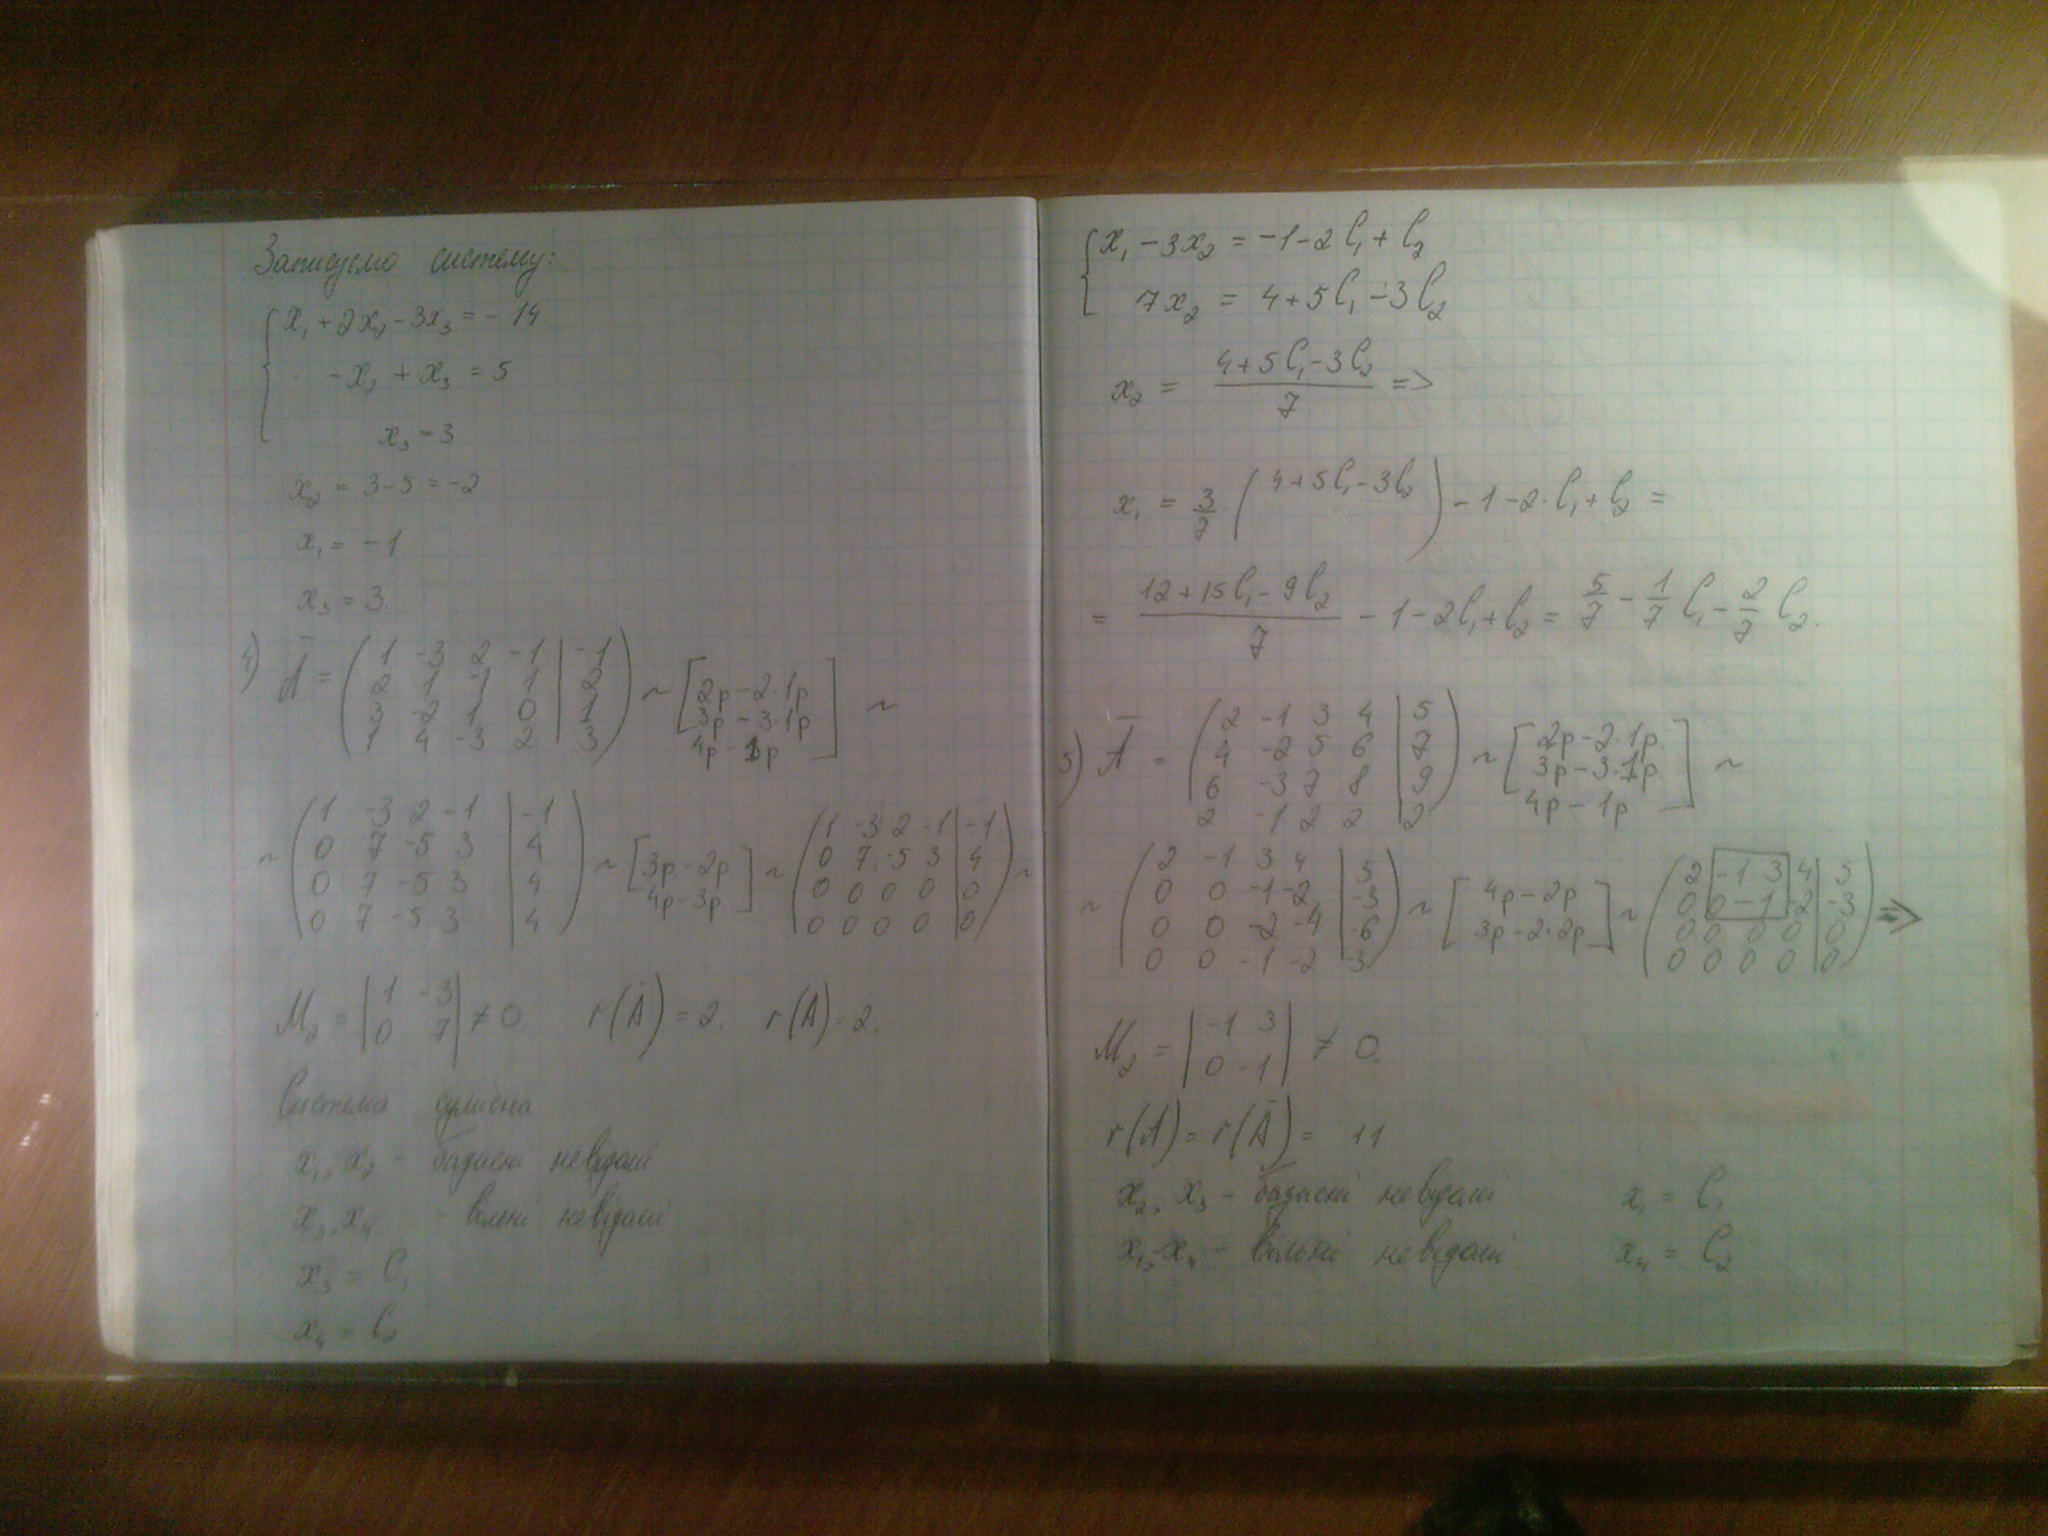 Записуємо систему:
{ x₁ + 2x₂ - 3x₃ = -14
-x₂ + x₃ = 5
x₃ - 3
x₂ = 3-5 = -2
x₁ = -1
x₃ = 3.
4) Ā = ( 1 -3 2 -1 | -1 )
2 1 -1 1 | 2
3 -2 1 0 | 1
1 4 -3 2 | 3
~ [ 2р - 2·1р
3р - 3·1р
4р - 1р ] ~
~ ( 1 -3 2 -1 | -1 )
0 7 -5 3 | 4
0 7 -5 3 | 4
0 7 -5 3 | 4
~ [ 3р - 2р
4р - 3р ] ~
( 1 -3 2 -1 | -1 ) ~
0 7 -5 3 | 4
0 0 0 0 | 0
0 0 0 0 | 0
M₂ = | 1 -3 | ≠ 0. r(Ā) = 2. r(A) = 2.
0 7
Система сумісна
x₁, x₂ - базисні невідомі
x₃, x₄ - вільні невідомі
x₃ = C₁
x₄ = C₂
{ x₁ - 3x₂ = -1 - 2C₁ + C₂
7x₂ = 4 + 5C₁ - 3C₂
x₂ = (4 + 5C₁ - 3C₂)/7 =>
x₁ = 3/7 ( 4 + 5C₁ - 3C₂ ) - 1 - 2·C₁ + C₂ =
= (12 + 15C₁ - 9C₂)/7 - 1 - 2C₁ + C₂ = 5/7 - 1/7 C₁ - 2/7 C₂.
5) Ā = ( 2 -1 3 4 | 5 )
4 -2 5 6 | 7
6 -3 7 8 | 9
2 -1 2 2 | 2
~ [ 2р - 2·1р.
3р - 3·1р
4р - 1р ] ~
~ ( 2 -1 3 4 | 5 )
0 0 -1 -2 | -3
0 0 -2 -4 | -6
0 0 -1 -2 | -3
~ [ 4р - 2р
3р - 2·2р ] ~
( 2 -1 3 4 | 5 ) =>
0 0 -1 -2 | -3
0 0 0 0 | 0
0 0 0 0 | 0
M₂ = | -1 3 | ≠ 0.
0 -1
r(A) = r(Ā) = 11
x₂, x₃ - базисні невідомі x₁ = C₁
x₁, x₄ - вільні невідомі x₄ = C₂